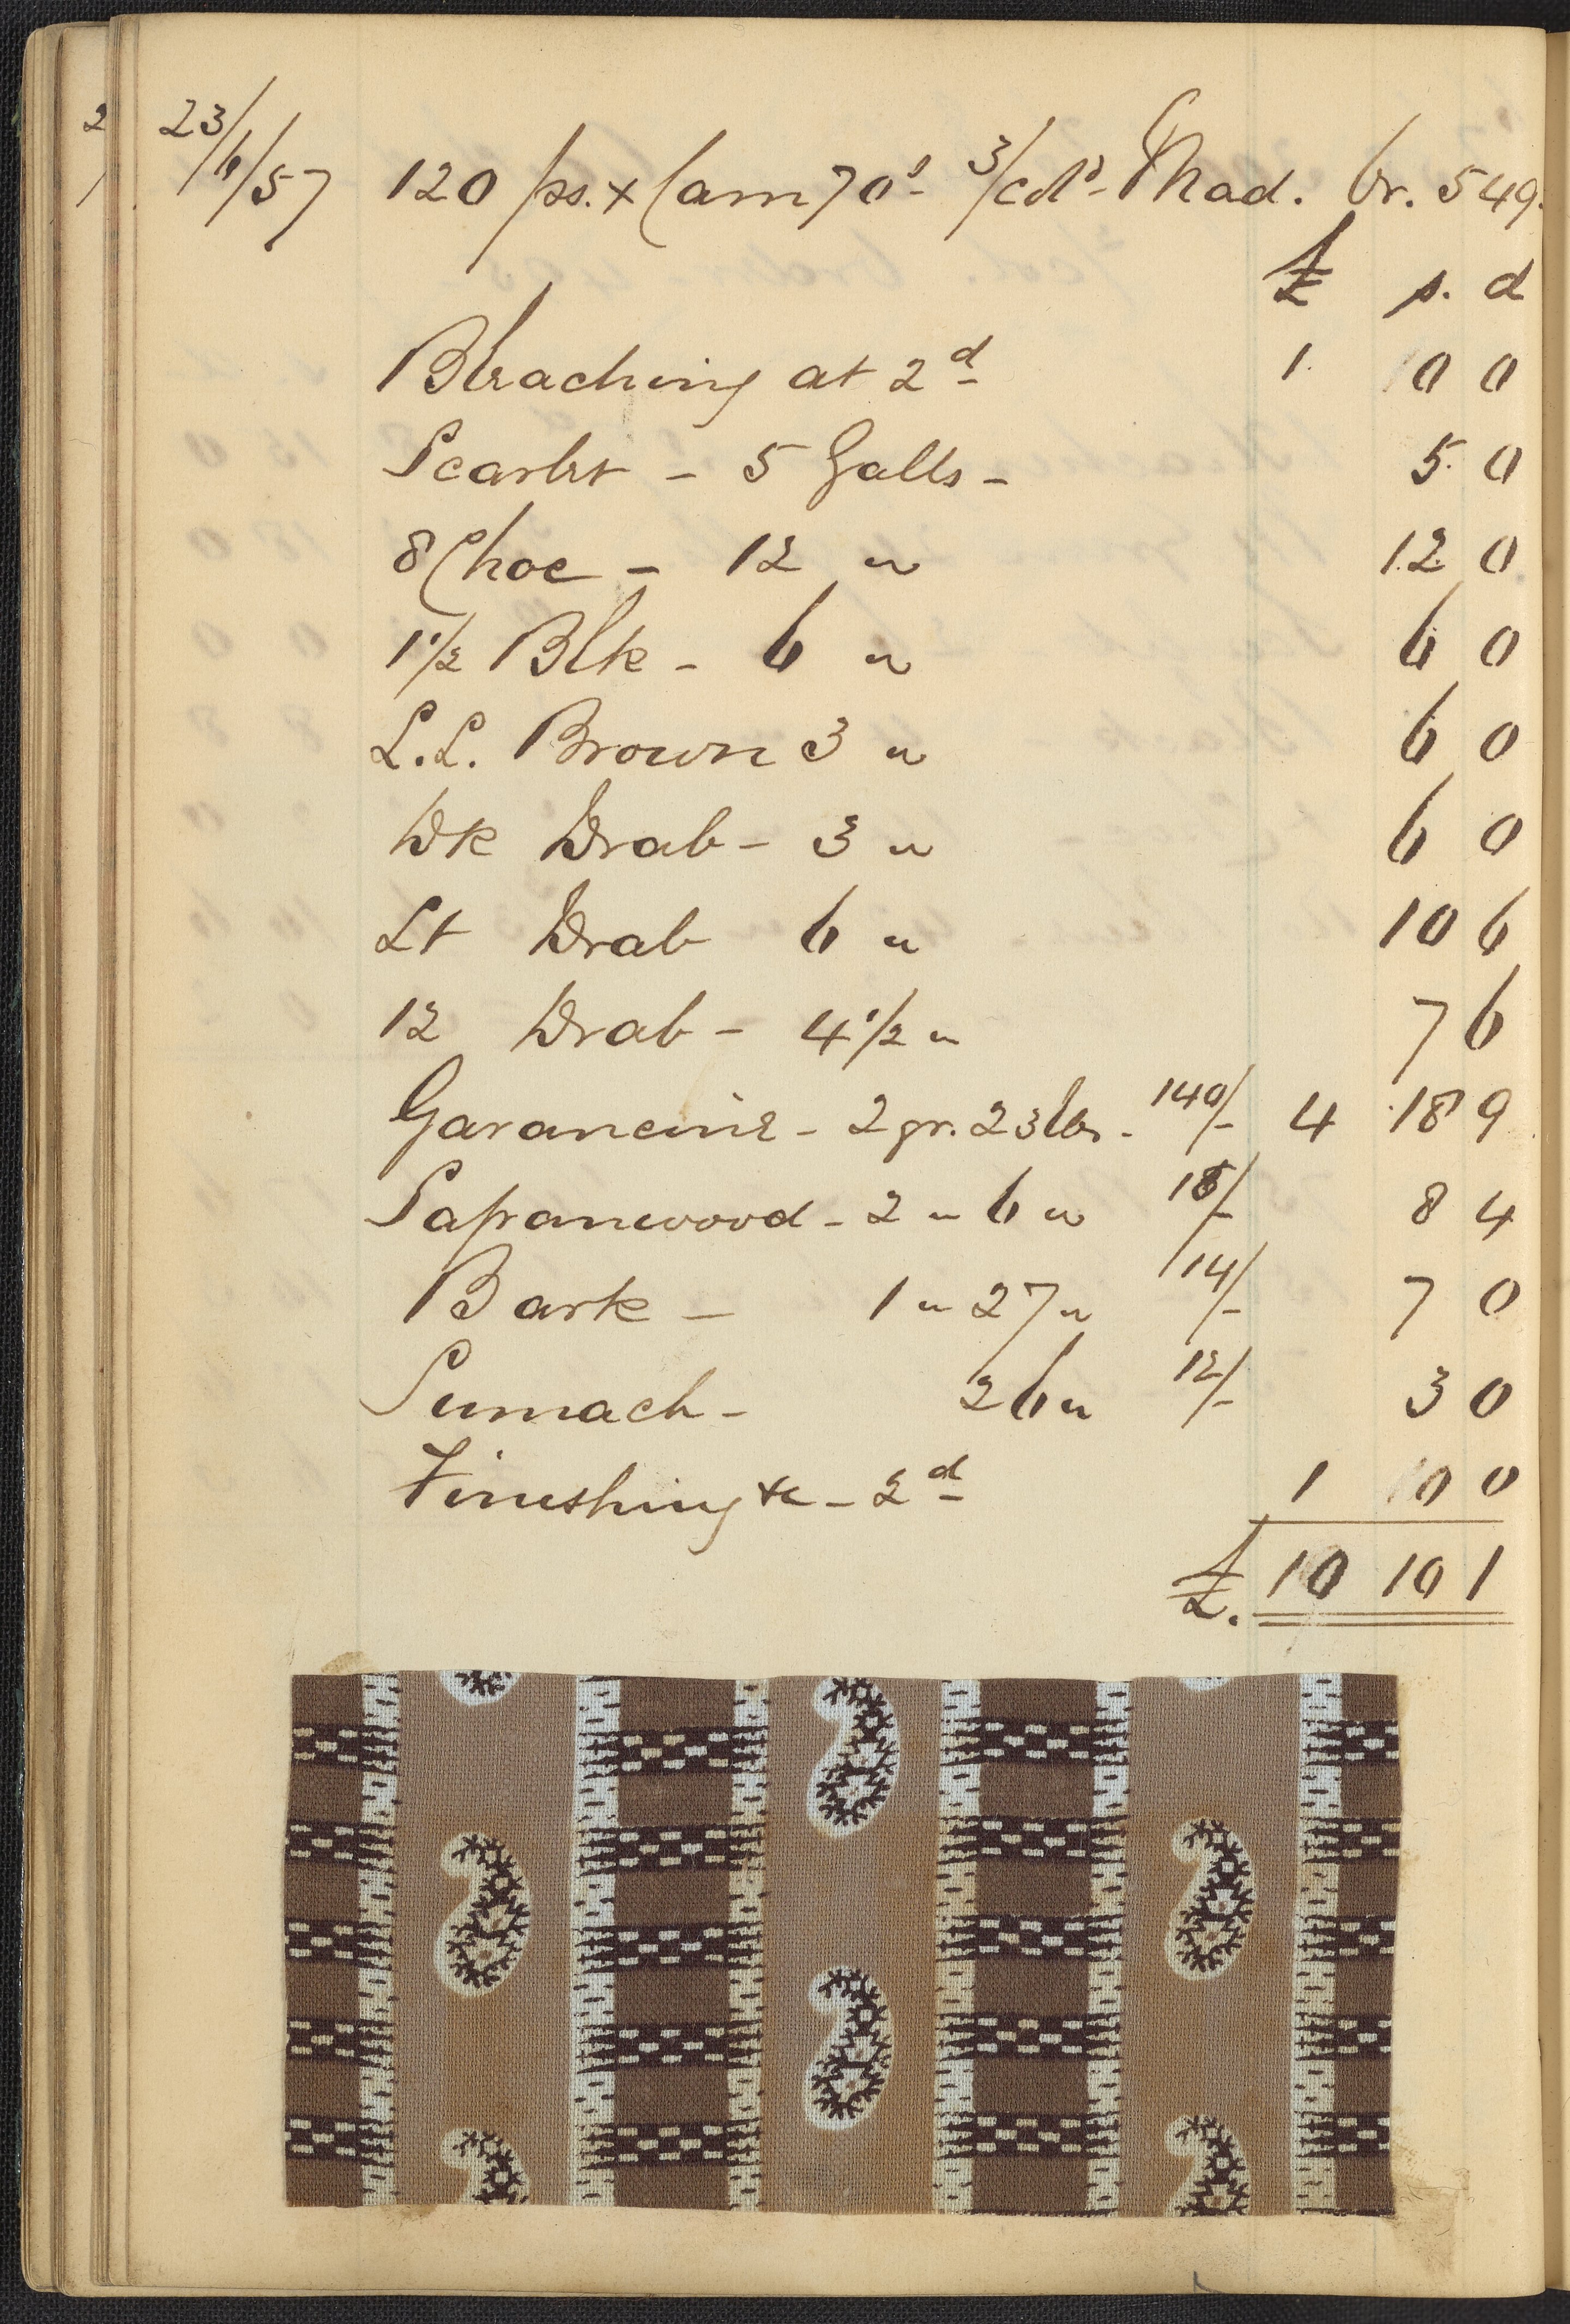 2
23/6/57 120 ps. x Cam 70s 3/cds Mad. br. 549.
£ s. d
Bleaching at 2d 1. 0 0
Scarlet - 5 Galls - 5. 0
8 Choc - 12 " 12 0
1 1/2 Blk - 6 " 6 0
L.L. Brown 3 " 6 0
Dk Drab - 3 " 6 0
Lt Drab 6 " 10 6
12 Drab - 4 1/2 " 7 6
Garancine - 2 qr. 23 lbs. 140/- 4 18 9
Sapanwood - 2 " 6 " 18/- 8 4
Bark - 1 " 27 " 14/- 7 0
Sumach - 26 " 12/- 3 0
Finishing &c - 2d 1 0 0
£. 10 10 1